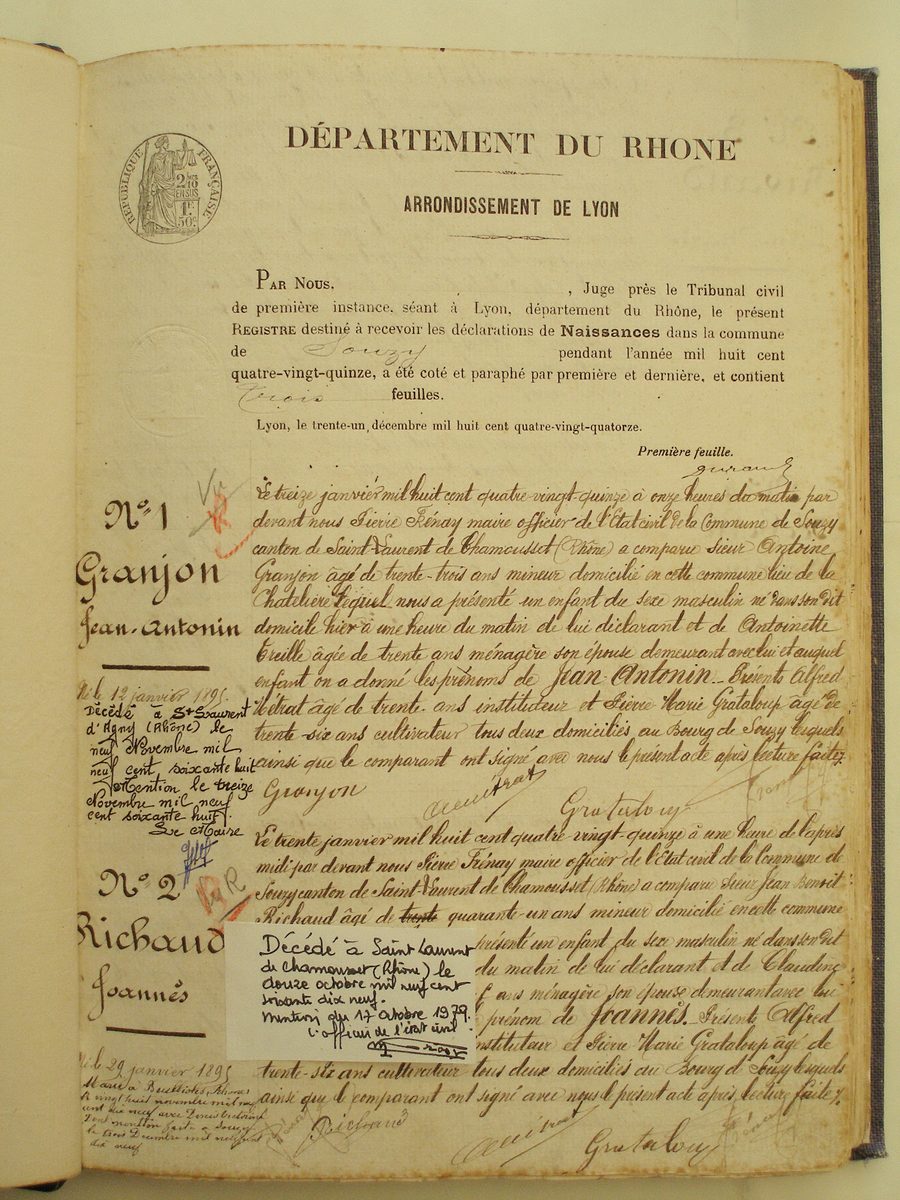 DÉPARTEMENT DU RHONE
RÉPUBLIQUE FRANÇAISE
2/10 EN SUS
1F 50c
ARRONDISSEMENT DE LYON
PAR NOUS, , Juge près le Tribunal civil
de première instance, séant à Lyon, département du Rhône, le présent
REGISTRE destiné à recevoir les déclarations de Naissances dans la commune
de Souzy pendant l'année mil huit cent
quatre-vingt-quinze, a été coté et paraphé par première et dernière, et contient
trois feuilles.
Lyon, le trente-un décembre mil huit cent quatre-vingt-quatorze.
Première feuille.
N° 1
Granjon
Jean-Antonin
Né le 12 janvier 1895.
Décédé à St Laurent
d'Agny (Rhône) le
neuf Novembre mil
neuf cent soixante huit
Mention le treize
Novembre mil neuf
cent soixante huit.
Le Maire
Le treize janvier mil huit cent quatre-vingt-quinze à onze heures du matin par
devant nous Pierre Frénay maire officier de l'Etat civil de la Commune de Souzy
canton de Saint Laurent de Chamousset (Rhône) a comparu Sieur Antoine
Granjon âgé de trente-trois ans mineur domicilié en cette commune lieu de la
Chatelière Lequel nous a présenté un enfant du sexe masculin né dans son dit
domicile hier à une heure du matin de lui déclarant et de Antoinette
Treille âgée de trente ans ménagère son épouse demeurant avec lui et auquel
enfant on a donné les prénoms de Jean-Antonin. Présents Alfred
Metrat âgé de trente ans instituteur et Pierre Marie Grataloup âgé de
trente-six ans cultivateur tous deux domiciliés au Bourg de Souzy lesquels
ainsi que le comparant ont signé avec nous le présent acte après lecture faite.
Granjon
Grataloup
N° 2
Richaud
Joannès
Né le 29 janvier 1895
Le trente janvier mil huit cent quatre vingt-quinze à une heure de l'après
midi par devant nous Pierre Frénay maire officier de l'Etat civil de la Commune de
Souzy canton de Saint-Laurent de Chamousset (Rhône) a comparu Sieur Jean Benoit
Richaud âgé de trente quarante-un ans mineur domicilié en cette commune
présenté un enfant du sexe masculin né dans son dit
du matin de lui déclarant et de Claudine
ans ménagère son épouse demeurant avec lui
prénom de Joannès. Présents Alfred
instituteur et Pierre Marie Grataloup âgé de
trente-six ans cultivateur tous deux domiciliés au Bourg de Souzy lesquels
ainsi que le comparant ont signé avec nous le présent acte après lecture faite.
Décédé à Saint Laurent
de Chamousset (Rhône) le
douze octobre mil neuf cent
soixante dix neuf.
Mention du 17 octobre 1979.
L'officier de l'état civil
Richaud
Grataloup